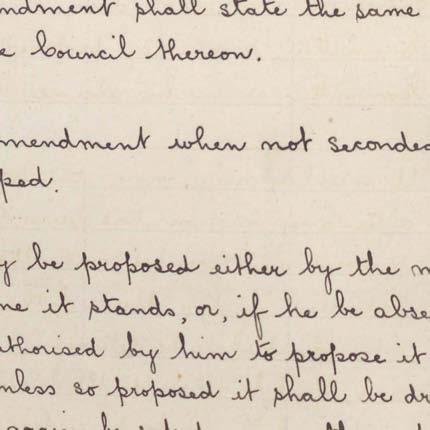 ndment shall state the same
e Council thereon.
mendment when not seconded
ped.
y be proposed either by the m
me it stands, or, if he be abse
uthorised by him to propose it
nless so proposed it shall be dr